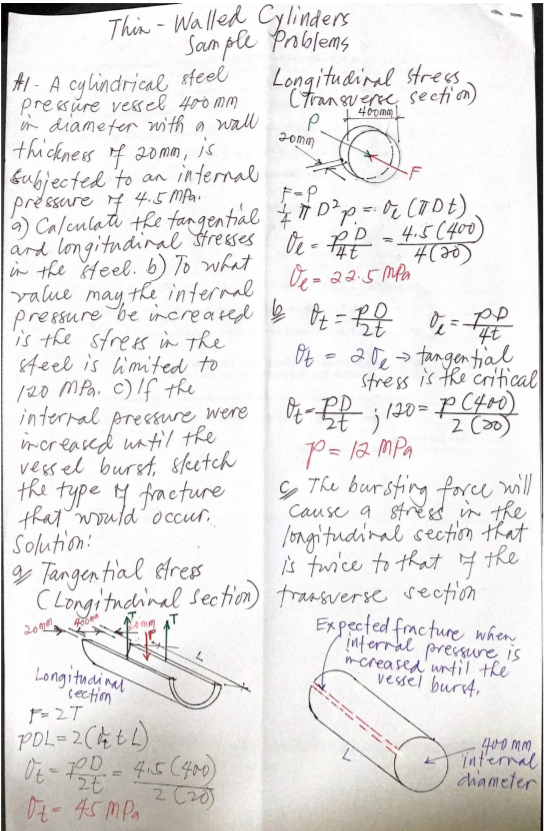 Thin - Walled Cylinders
Sample Problems
#1 - A cylindrical steel
pressure vessel 400 mm
in diameter with a wall
thickness of 20mm, is
subjected to an internal
pressure of 4.5 MPa.
a) Calculate the tangential
and longitudinal stresses
in the steel. b) To what
value may the internal
pressure be increased
is the stress in the
steel is limited to
120 MPa. c) If the
internal pressure were
increased until the
vessel burst, sketch
the type of fracture
that would occur.
Solution:
a) Tangential stress
(Longitudinal section)
20mm
400m
20mm
T
F
T
L
Longitudinal
section
F = 2T
PDL = 2(σt t L)
σt = PD/2t = 4.5(400)/2(20)
σt = 45 MPa
Longitudinal stress
(transverse section)
400mm
P
20mm
F
F = P
1/4 π D² p = σl (π D t)
σl = PD/4t = 4.5(400)/4(20)
σl = 22.5 MPa
b) σt = PD/2t σl = PD/4t
σt = 2σl → tangential
stress is the critical
σt = PD/2t ; 120 = P(400)/2(20)
P = 12 MPa
c) The bursting force will
cause a stress in the
longitudinal section that
is twice to that of the
transverse section
Expected fracture when
internal pressure is
increased until the
vessel burst.
L
400 mm
internal
diameter